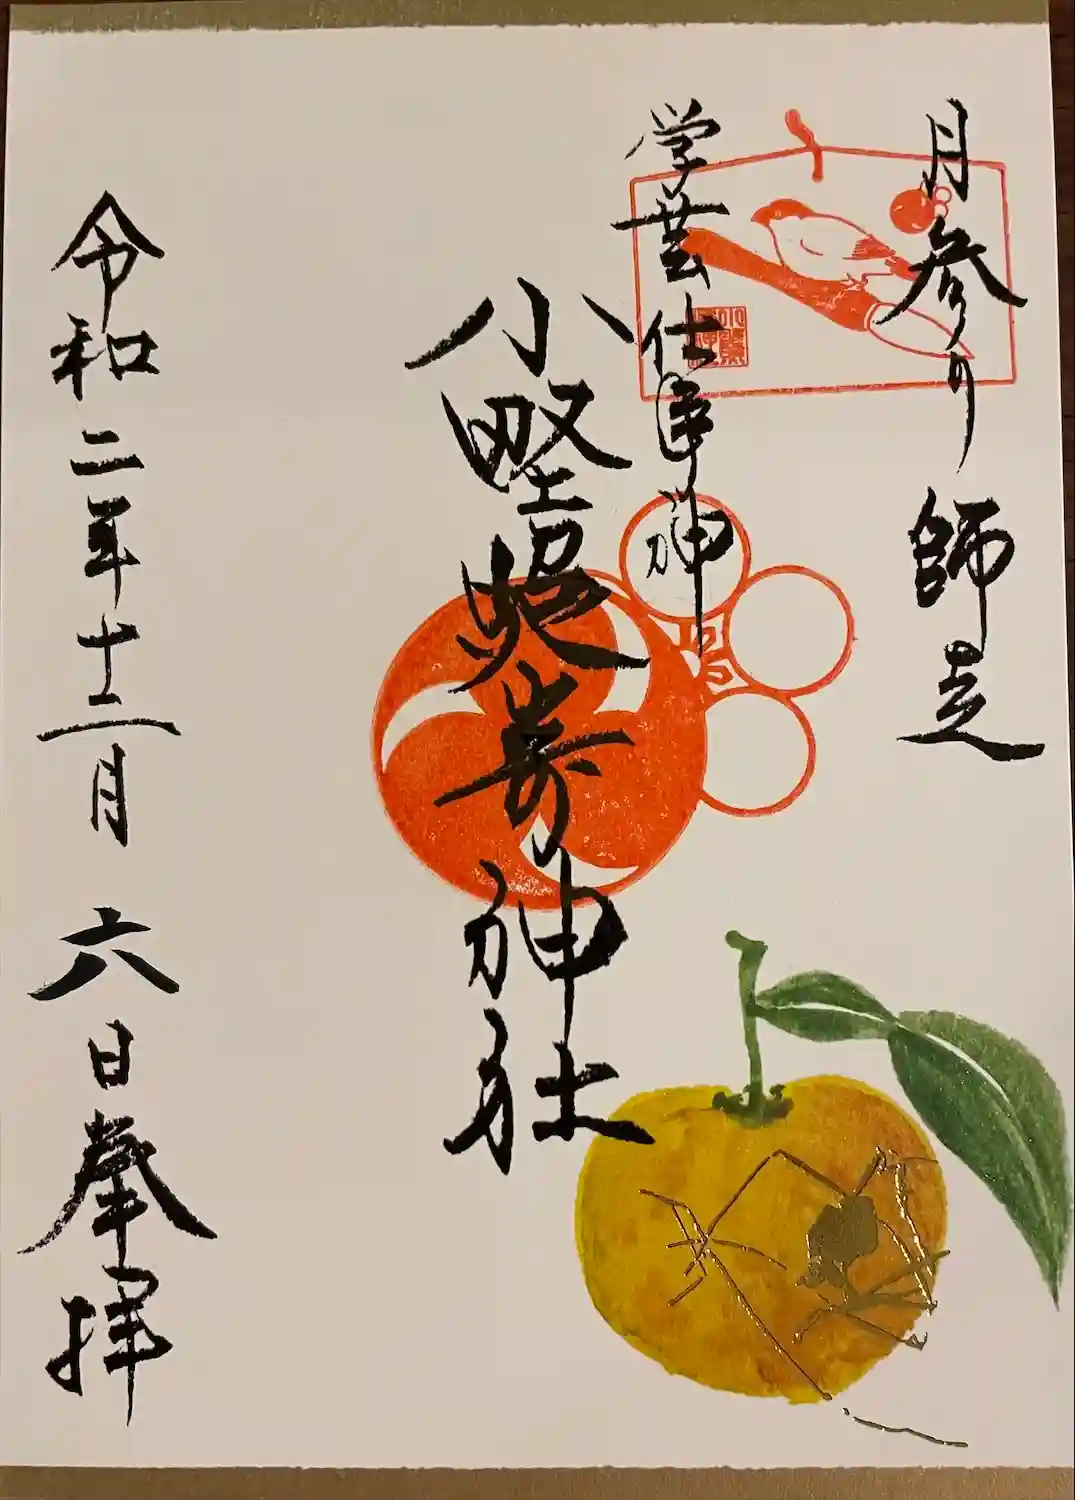 月参り 師走
学芸仕事神
小野照崎神社
令和二年十二月六日奉拝